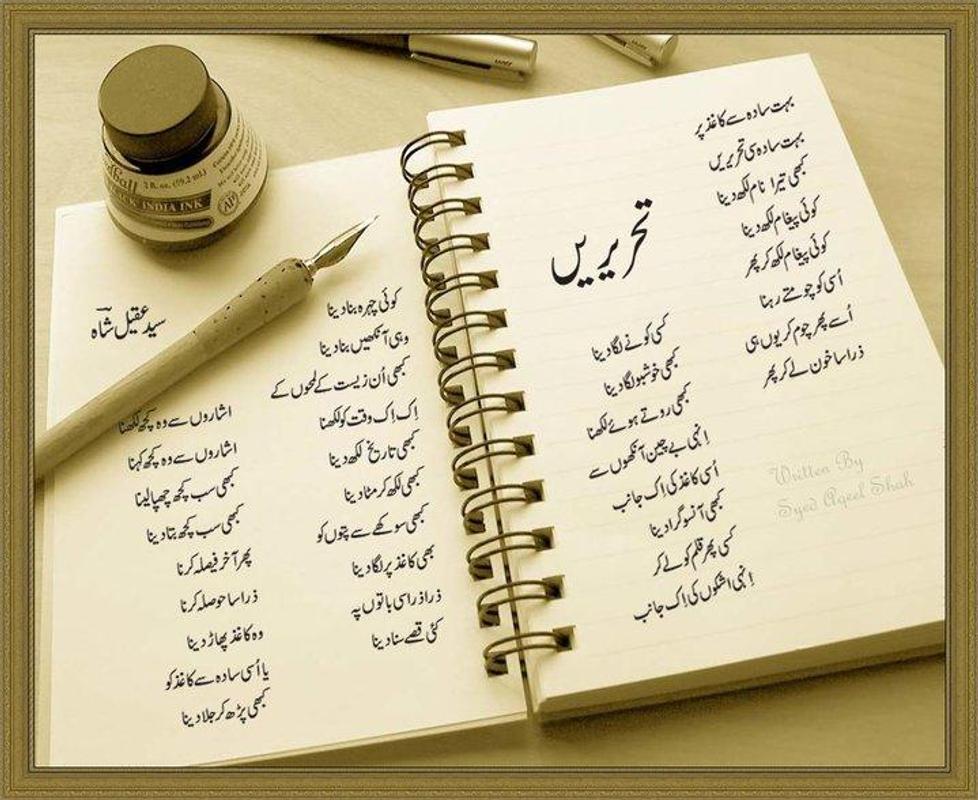 تحریریں
بہت سادہ سے کاغذ پر
بہت سادہ سی تحریریں
کبھی تیرا نام لکھ دینا
کوئی پیغام لکھ دینا
کوئی پیغام لکھ کر پھر
اُسی کو چومتے رہنا
اُسے پھر چوم کر یوں ہی
ذرا سا خون لے کر پھر
کسی کونے لگا دینا
کبھی خوشبو لگا دینا
کبھی روتے ہوئے لکھنا
اِنہی بے چین آنکھوں سے
اُسی کاغذ کی اِک جانب
کبھی آنسو گرا دینا
کسی پھر قلم کو لے کر
اِنہی اشکوں کی اِک جانب
کوئی چہرہ بنا دینا
وہی آنکھیں بنا دینا
کبھی اُن زیست کے لمحوں کے
اِک اِک وقت کو لکھنا
کبھی تاریخ لکھ دینا
کبھی لکھ کر مٹا دینا
کبھی سوکھے سے پتوں کو
بھی کاغذ پر لگا دینا
ذرا ذراسی باتوں پہ
کئی قصے سنا دینا
اشاروں سے وہ کچھ لکھنا
اشاروں سے وہ کچھ کہنا
کبھی سب کچھ چھپا لینا
کبھی سب کچھ بتا دینا
پھر آخر فیصلہ کرنا
ذرا سا حوصلہ کرنا
وہ کاغذ پھاڑ دینا
یا اُسی سادہ سے کاغذ کو
کبھی پڑھ کر جلا دینا
سید عقیل شاہ
Written By
Syed Aqeel Shah
2 fl. oz. (59.2 mL)
INDIA INK
AP